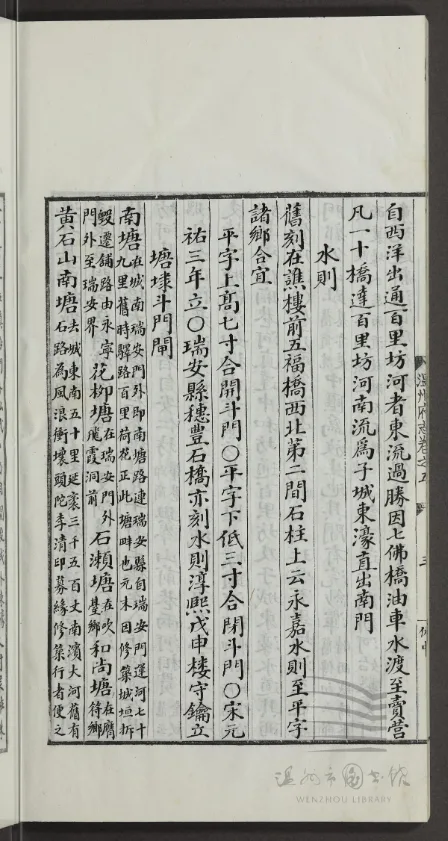 自西洋出通百里坊河者東流過勝因七佛橋油車水渡至賣營
凡一十橋達百里坊河南流爲子城東濠直出南門
水則
舊刻在譙樓前五福橋西北第二間石柱上云永嘉水則至平字
諸鄉合宜
平字上高七寸合開斗門〇平字下低三寸合閉斗門〇宋元
祐三年立〇瑞安縣穗豐石橋亦刻水則淳熙戊申樓守鑰立
塘埭斗門閘
南塘在城南瑞安門外即南塘路連瑞安縣自瑞安門運河七十
九里舊時驛路百里荷花正此塘畔也元末因修築城垣拆
毀遷舖路由永寧
門外至瑞安界
花柳塘在瑞安門外
飛霞洞前
石瀨塘在吹
臺鄉
和尚塘在膺
符鄉
黃石山南塘去城東南五十里延袤三千五百丈南濱大河舊有
石路為風浪衝壞頭陀李清印募緣修築行者便之
溫州府志卷之五
三
溫州市圖書館
WENZHOU LIBRARY